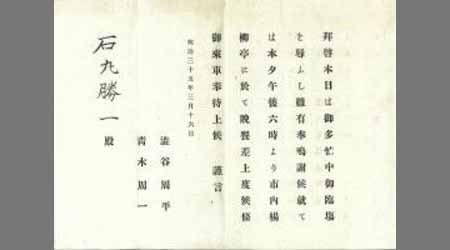 拜啓本日は御多忙中御臨塲
を辱ふし難有奉鳴謝候就て
は本夕午後六時より市內楊
柳亭に於て晩餐差上度候條
御來車奉待上候　謹言
明治三十五年三月十六日
澁谷周平
靑木周一
石丸勝一殿